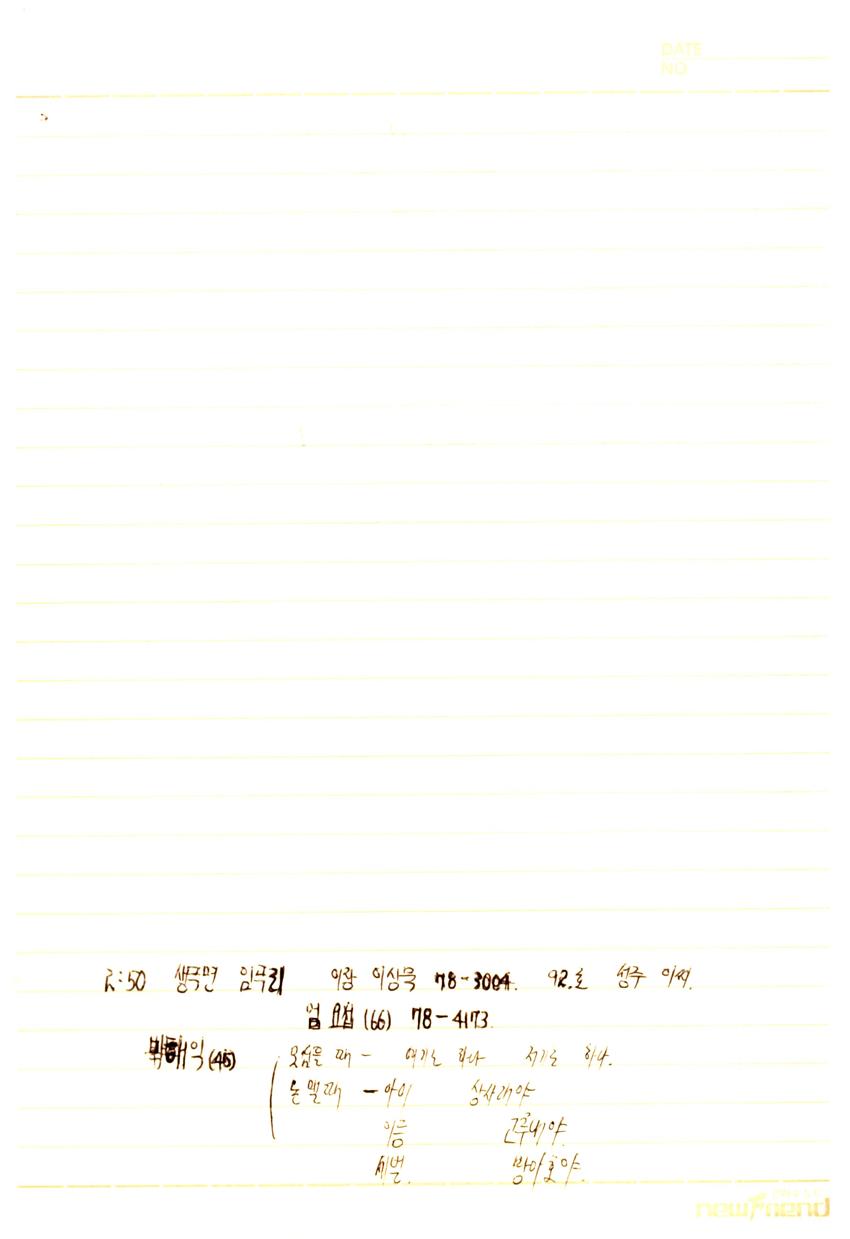 DATE
NO
2:50 생극면 임곡리 이장 이상욱 78-3004. 92.호 성주 이씨.
엄 (66) 78-4173.
(45) 모심을 때 - 여기는 하나 저기는 하나.
논맬때 - 아이 상사데야
이듬
세벌. 방아호야.
newFriend